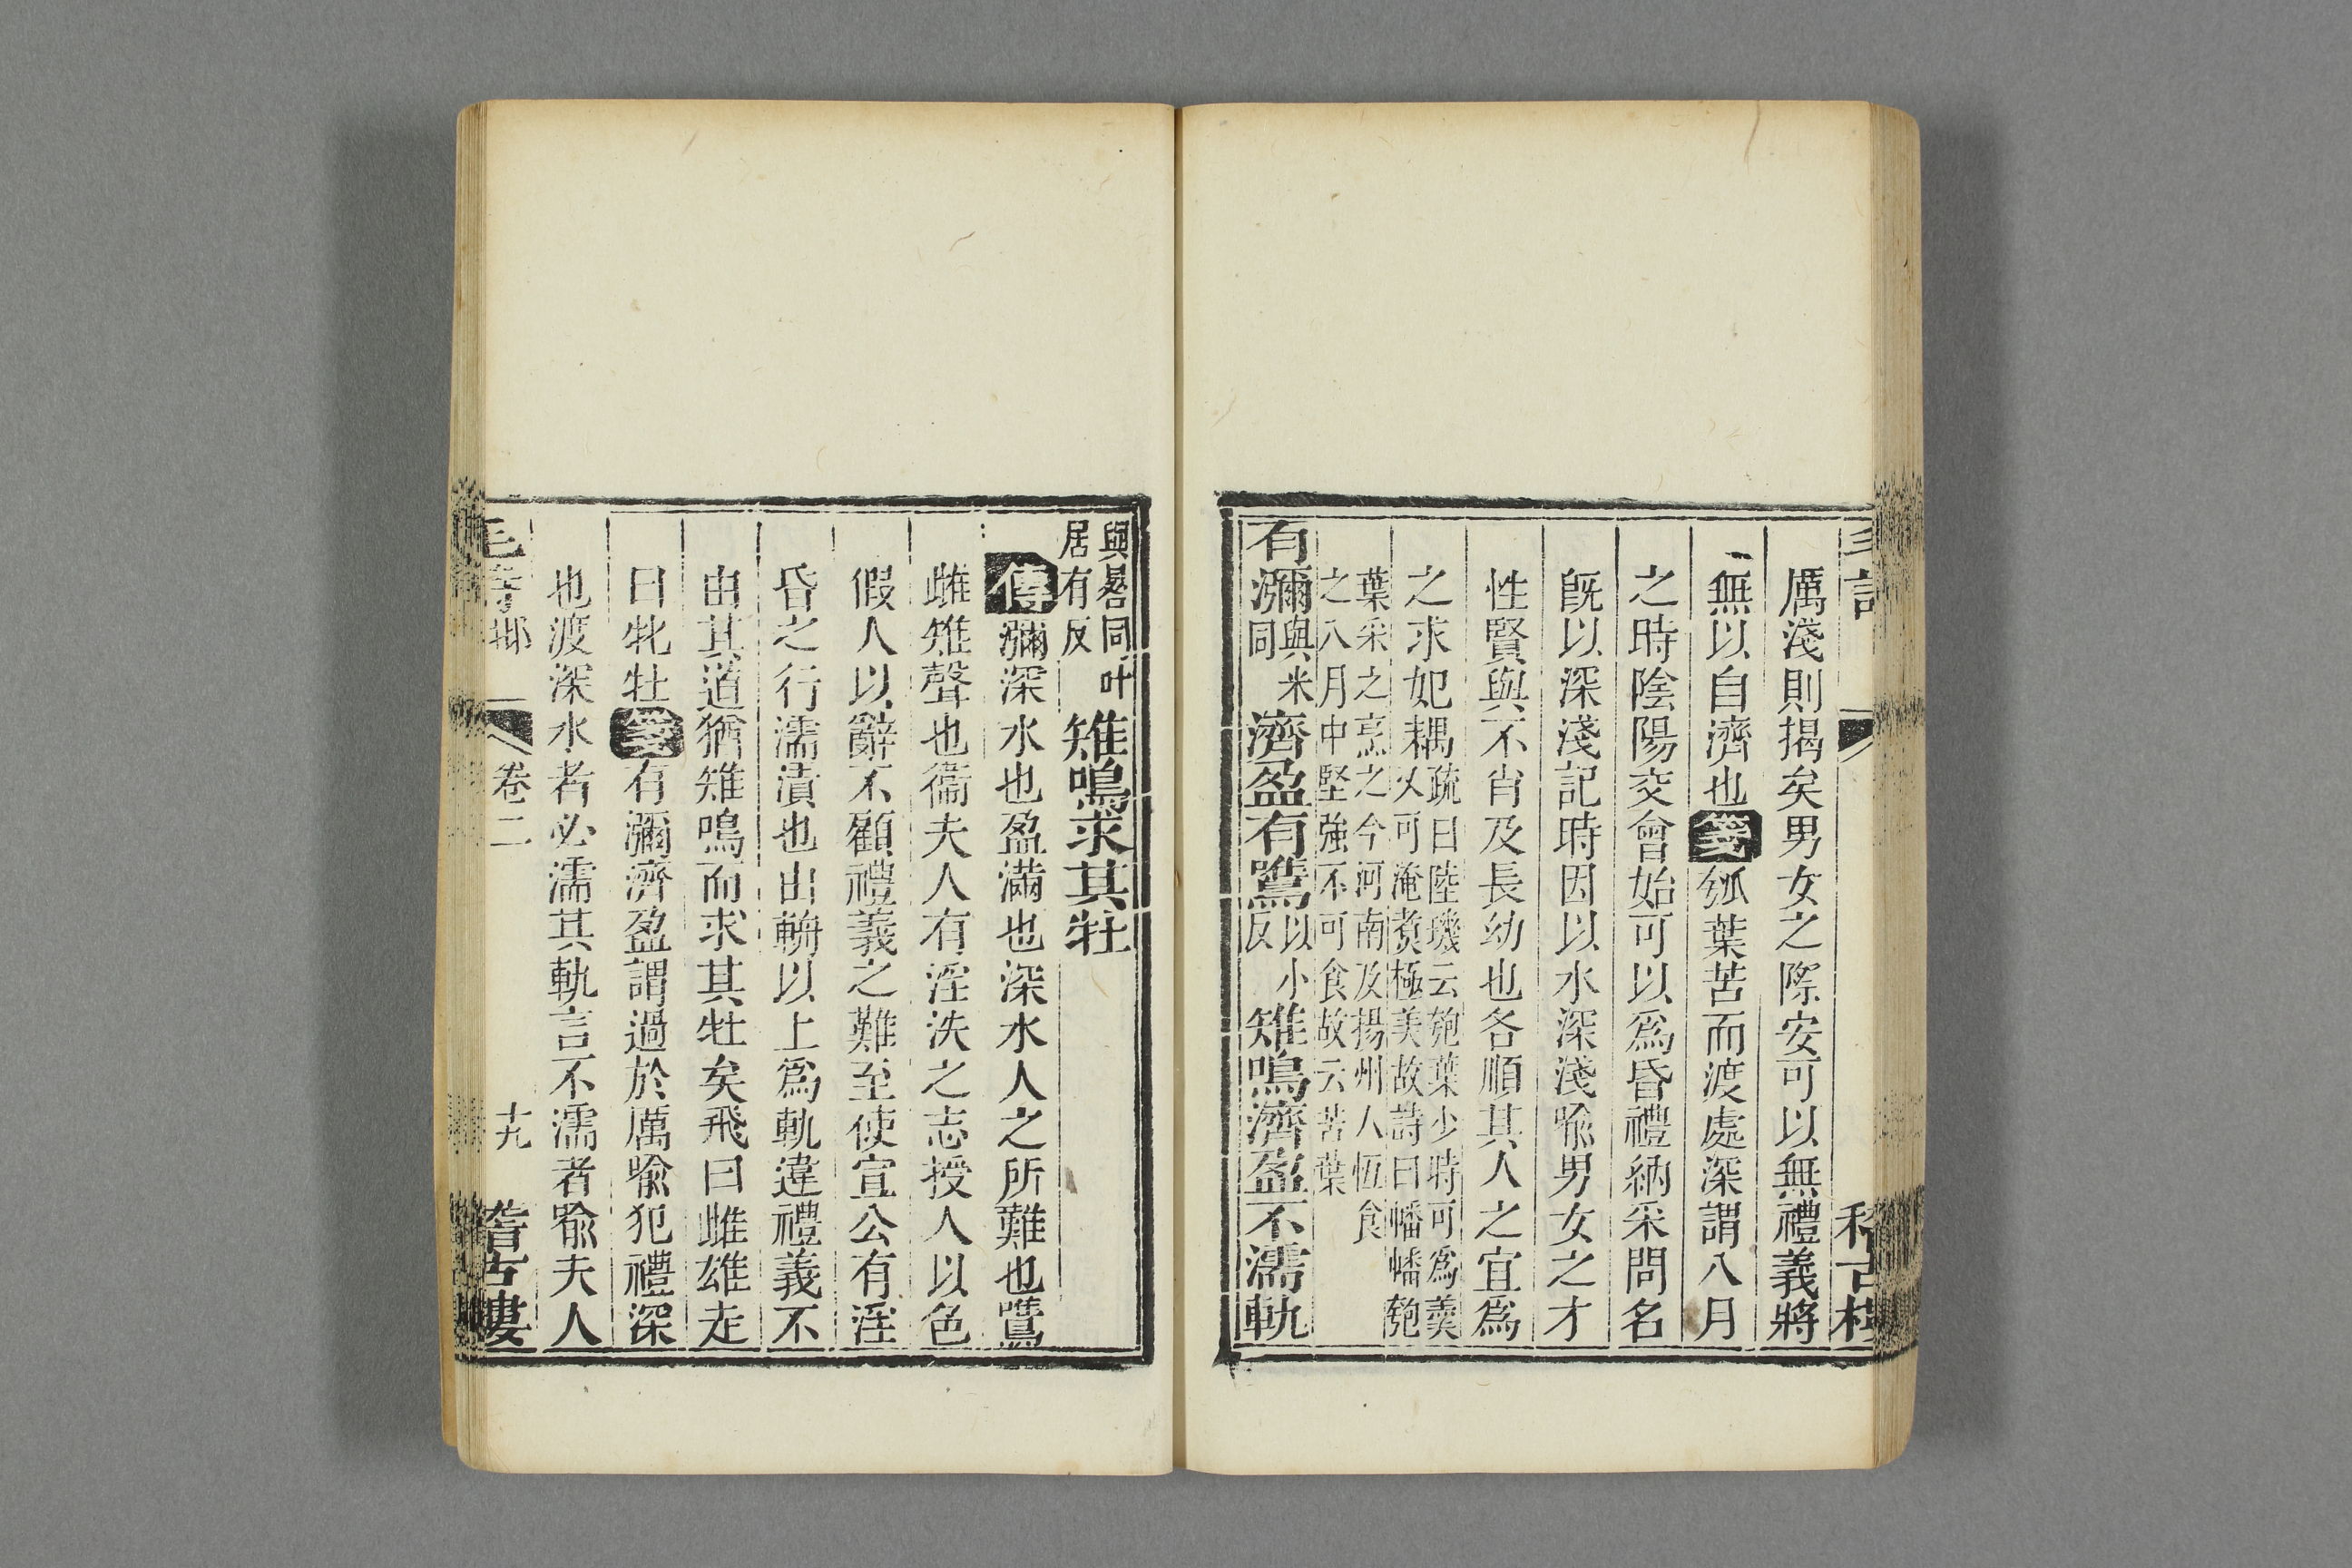 厲淺則揭矣男女之際安可以無禮義將
無以自濟也箋瓠葉苦而渡處深謂八月
之時陰陽交會始可以爲昏禮納采問名
旣以深淺記時因以水深淺喩男女之才
性賢與不肖及長幼也各順其人之宜爲
之求妃耦疏曰陸璣云匏葉少時可爲羹
又可淹煑極美故詩曰幡幡匏
葉采之烹之今河南及揚州人恆食
之八月中堅強不可食故云苦葉
有瀰與米同濟盈有鷕以小反雉鳴濟盈不濡軌
與晷同叶居有反雉鳴求其牡
傳瀰深水也盈滿也深水人之所難也鷕
雌雉聲也衞夫人有淫泆之志授人以色
假人以辭不顧禮義之難至使宣公有淫
昏之行濡漬也由輈以上爲軌違禮義不
由其道猶雉鳴而求其牡矣飛曰雌雄走
曰牝牡箋有瀰濟盈謂過於厲喩犯禮深
也渡深水者必濡其軌言不濡者喩夫人
毛詩邶 卷二 十九 稽古樓